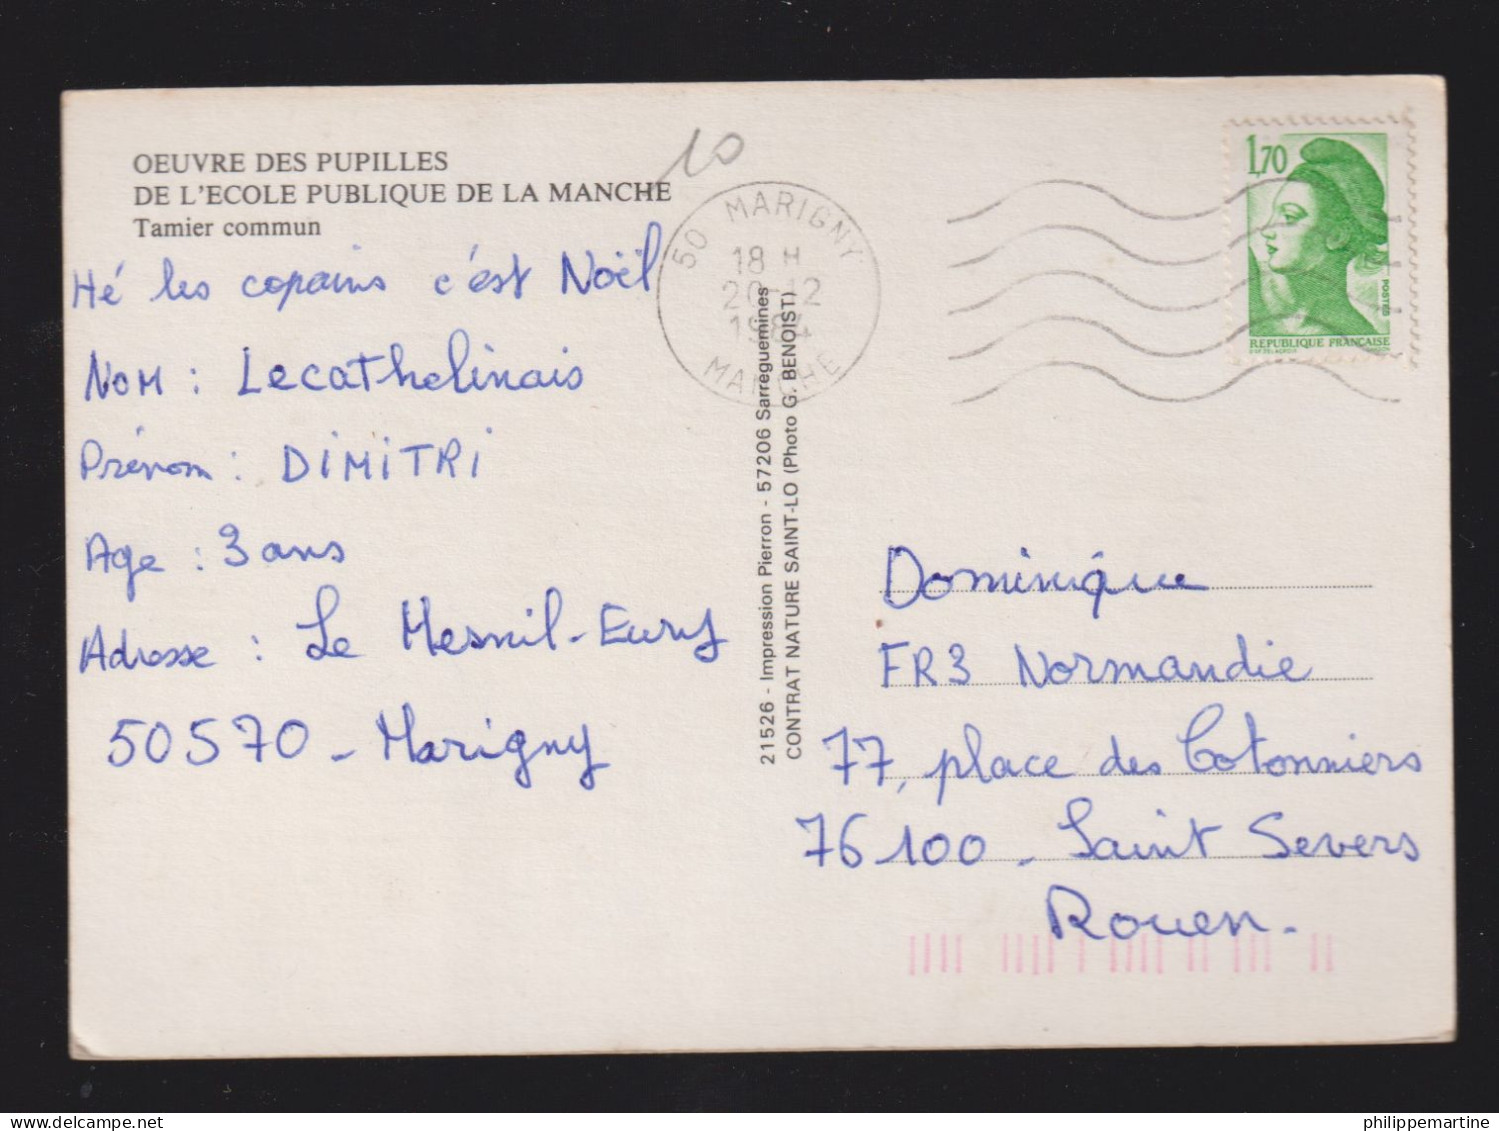 OEUVRE DES PUPILLES
DE L'ECOLE PUBLIQUE DE LA MANCHE
Tamier commun
10
Hé les copains c'est Noël
NOM : Lecathelinais
Prénom : DIMITRI
Age : 3 ans
Adresse : Le Mesnil-Eury
50570 - Marigny
50 MARIGNY
18 H
20-12
1984
MANCHE
21526 - Impression Pierron - 57206 Sarreguemines
CONTRAT NATURE SAINT-LO (Photo G. BENOIST)
1,70
POSTES
REPUBLIQUE FRANÇAISE
Dominique
FR3 Normandie
77, place des Cotonniers
76100 - Saint Severs
Rouen.
https://www.delcampe.net
philippemartine